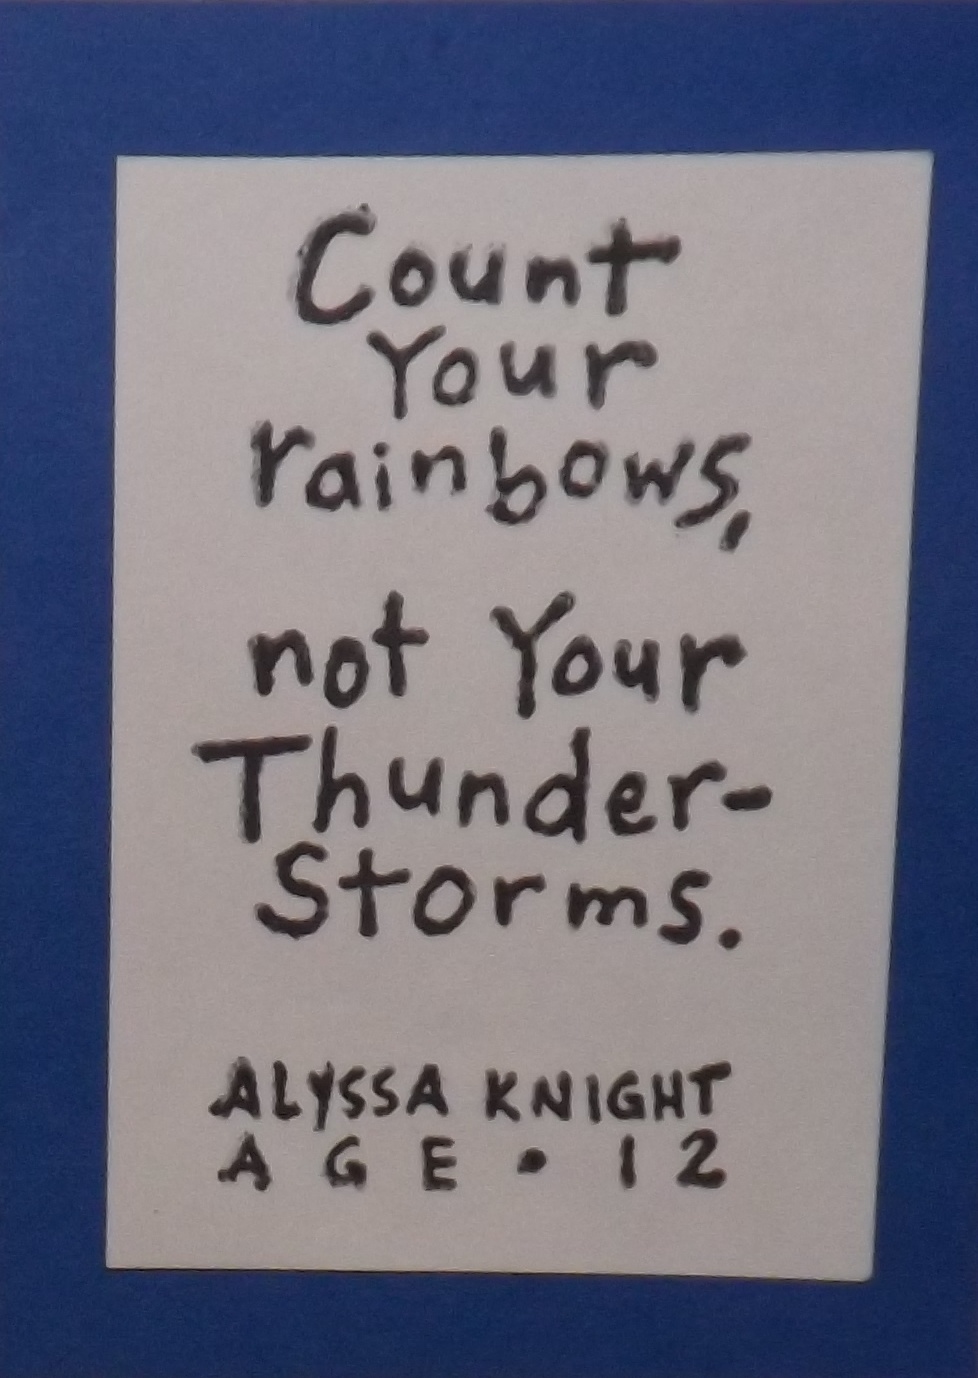 Count
Your
rainbows,
not Your
Thunder-
Storms.
ALYSSA KNIGHT
AGE • 12